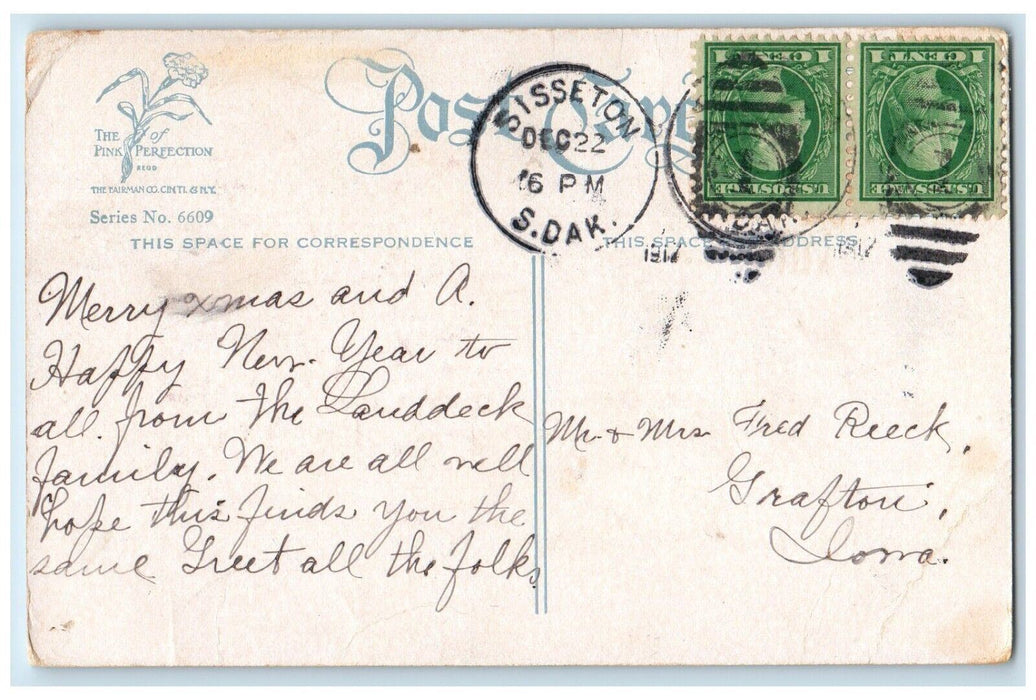 THE of
PINK PERFECTION
REGD
THE FAIRMAN CO. CIN'TI. & N.Y.
Series No. 6609
Post Card
SISSETON
DEC 22
6 PM
S.DAK.
1917
1 CENT 1
U.S. POSTAGE
1 CENT 1
U.S. POSTAGE
DAK.
1917
THIS SPACE FOR CORRESPONDENCE
THIS SPACE ADDRESS
Merry xmas and A.
Happy New. Year to
all. from the Landdeck
family. We are all well
hope this finds you the
same Greet all the folks.
Mr. & Mrs. Fred Reeck,
Grafton,
Iowa.